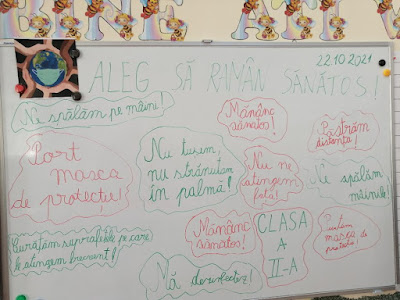 BINE AȚI V
22.10.2021
ALEG SĂ RĂMÂN SĂNĂTOS!
Ne spălăm pe mâini!
Mănânc
sănătos!
Păstrăm
distanța!
Port
masca
de protecție!
Nu tusim,
nu strănutăm
în palmă!
Nu ne
atingem
fața!
Ne spălăm
mâinile!
Mănânc
sănătos!
CLASA
A
II-A
Purtăm
masca de
protecție!
Curățăm suprafețele pe care
le atingem frecvent!
Mă dezinfectez!